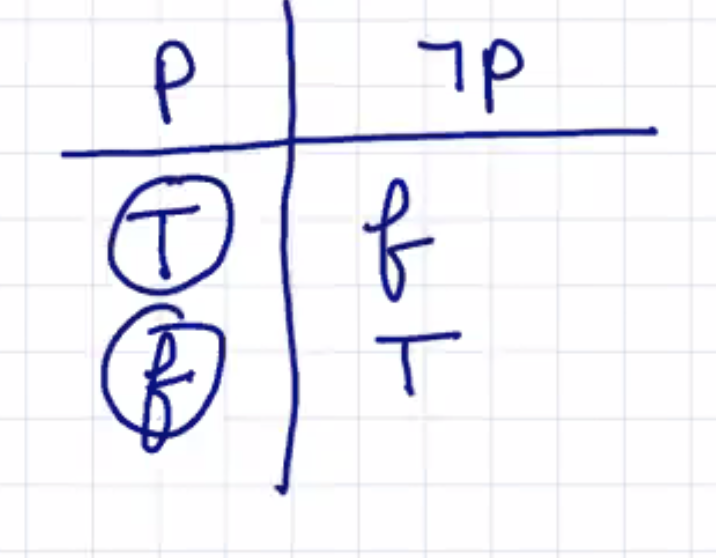 p ¬p
T f
f T